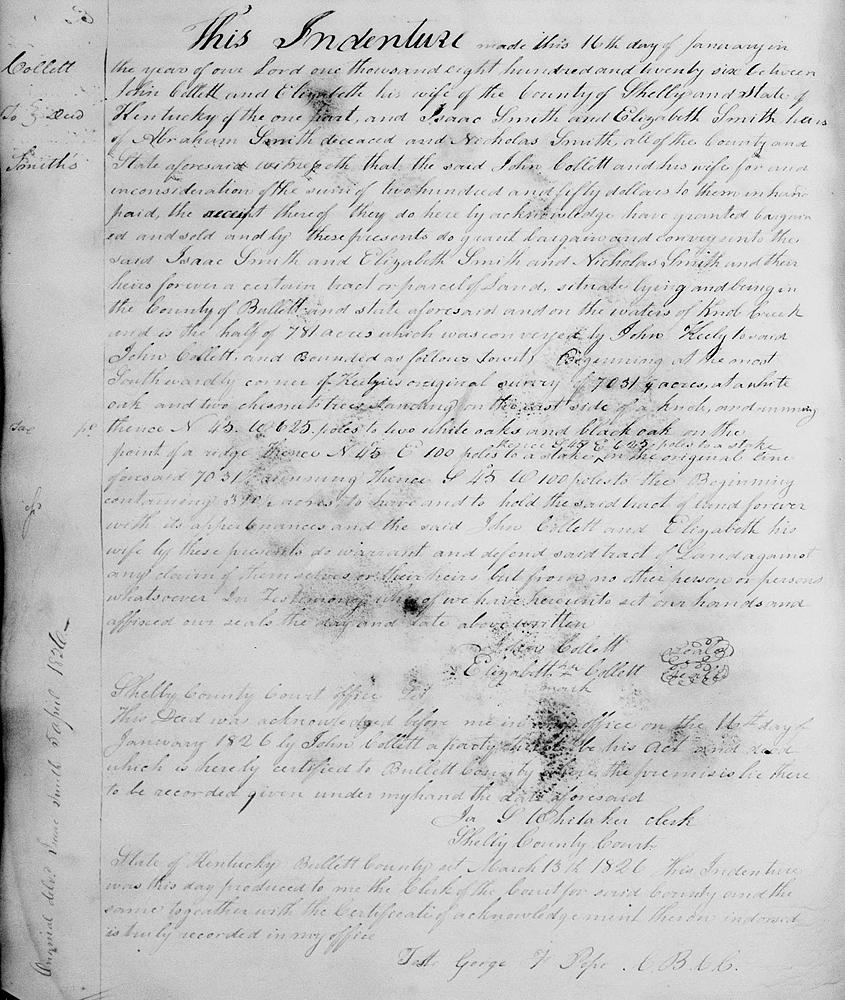 Collett
To } Deed
Smith's
This Indenture made this 16th day of January in
the year of our Lord one thousand eight hundred and twenty six between
John Collett and Elizabeth his wife of the County of Shelby and State of
Kentucky of the one part, and Isaac Smith and Elizabeth Smith heirs
of Abraham Smith deceased and Nicholas Smith, all of the County and
State aforesaid witnesseth that the said John Collett and his wife for and
inconsideration of the sum of two hundred and fifty dollars to them in hand
paid, the receipt thereof they do here by acknowledge have granted bargain
ed and sold and by these presents do grant bargain and convey unto the
said Isaac Smith and Elizabeth Smith and Nicholas Smith and their
heirs forever a certain tract or parcel of Land, situate lying and being in
the County of Bullett and state aforesaid and on the waters of Knob Creek
and is the half of 781 acres which was conveyed by John Keely to said
John Collett, and Bounded as follows towit) Beginning at the most
Southwardly corner of original survey of 7031 1/4 acres, at a white
oak and two chesnuts trees standing on the east side of a knob, and running
thence N 45 W 625 poles to two white oaks and black oak on the
point of a ridge thence N 45 E 100 poles to a stake thence S 45 E 625 poles to a stake in the original line
foresaid 7031 running thence S 45 W 100 poles to the Beginning
containing acres to have and to hold the said tract of land forever
with its appertenances and the said John Collett and Elizabeth his
wife by these presents do warrant and defend said tract of Land against
any claim of themselves or their heirs but from no other person or persons
whatsoever In Testimony whereof we have hereunto set our hands and
affixed our seals the day and date above written
John Collett Seal
Elizabeth her Collett Seal
mark
Shelby County Court office
This Deed was acknowledged before me in my office on the 16th day of
January 1826 by John Collett a party to be his act and deed
which is hereby certified to Bullett County where the premises lie there
to be recorded given under my hand the date aforesaid
Ja S Whitaker clerk
Shelby County Court
State of Kentucky Bullett County sct March 13th 1826 This Indenture
was this day produced to me the Clerk of the Court for said County and the
same togeather with the Certificate of acknowledgement theron indorsed
is truly recorded in my office
Test George F Pope C.B.C.C.
Original delivd Isaac Smith 5 April 1826